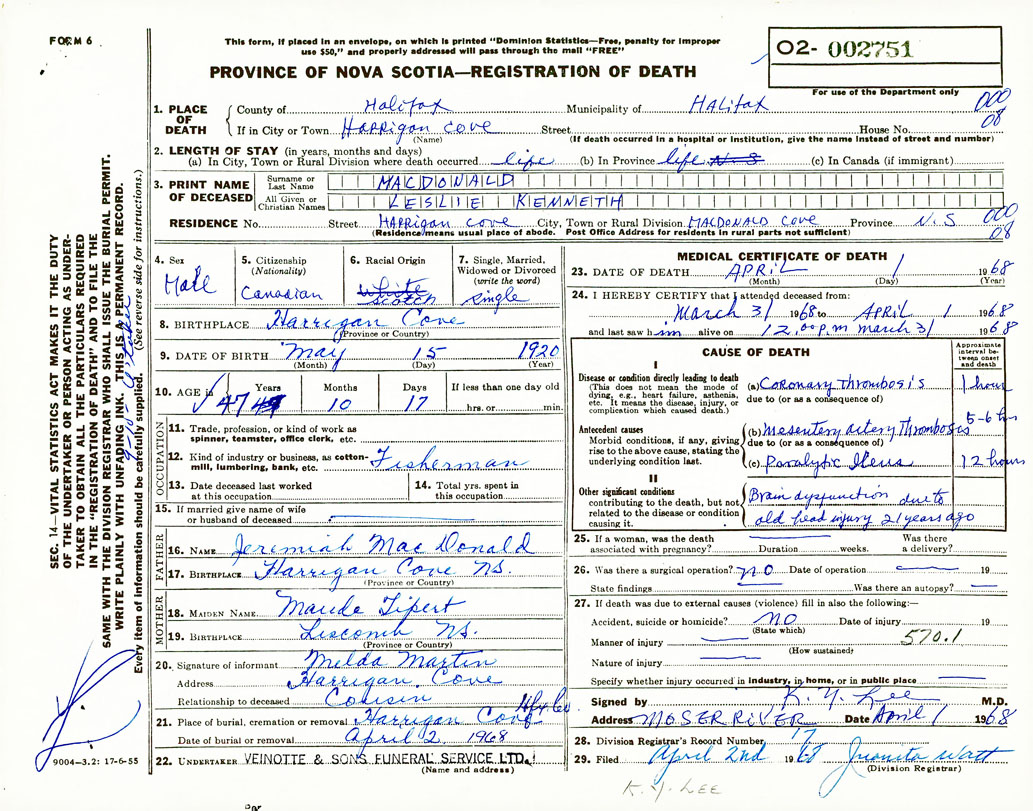 FORM 6
This form, if placed in an envelope, on which is printed "Dominion Statistics—Free, penalty for improper
use $50," and properly addressed will pass through the mail "FREE"
PROVINCE OF NOVA SCOTIA—REGISTRATION OF DEATH
O2- 002751
For use of the Department only
1. PLACE OF DEATH County of Halifax Municipality of Halifax 000
If in City or Town Harrigan Cove Street House No. 08
(Name) (If death occurred in a hospital or institution, give the name instead of street and number)
2. LENGTH OF STAY (in years, months and days)
(a) In City, Town or Rural Division where death occurred life (b) In Province life N-S (c) In Canada (if immigrant)
3. PRINT NAME OF DECEASED
Surname or Last Name MACDONALD
All Given or Christian Names LESLIE KENNETH
RESIDENCE No. Street Harrigan Cove City, Town or Rural Division MACDONALD Cove Province N.S 000
(Residence means usual place of abode. Post Office Address for residents in rural parts not sufficient) 08
4. Sex Male
5. Citizenship (Nationality) Canadian
6. Racial Origin White Scotch
7. Single, Married, Widowed or Divorced (write the word) single
8. BIRTHPLACE Harrigan Cove
(Province or Country)
9. DATE OF BIRTH May 15 1920
(Month) (Day) (Year)
10. AGE in Years Months Days If less than one day old
47 10 17 hrs. or min.
OCCUPATION
11. Trade, profession, or kind of work as
spinner, teamster, office clerk, etc.
12. Kind of industry or business, as cotton-
mill, lumbering, bank, etc. Fisherman
13. Date deceased last worked
at this occupation
14. Total yrs. spent in
this occupation
15. If married give name of wife
or husband of deceased
FATHER
16. NAME Jeremiah MacDonald
17. BIRTHPLACE Harrigan Cove NS.
(Province or Country)
MOTHER
18. MAIDEN NAME Maude Tipert
19. BIRTHPLACE Liscomb NS.
(Province or Country)
20. Signature of informant Melda Martin
Address Harrigan Cove
Relationship to deceased Cousin
21. Place of burial, cremation or removal Harrigan Cove Hfx Co
Date of burial or removal April 2 1968
22. UNDERTAKER VEINOTTE & SONS FUNERAL SERVICE LTD.
(Name and address)
MEDICAL CERTIFICATE OF DEATH
23. DATE OF DEATH APRIL 1 1968
(Month) (Day) (Year)
24. I HEREBY CERTIFY that I attended deceased from:
March 31 1968 to APRIL 1 1968
and last saw him alive on 12.00 P.M March 31 1968
CAUSE OF DEATH
Approximate interval between onset and death
I
Disease or condition directly leading to death
(This does not mean the mode of
dying, e.g., heart failure, asthenia,
etc. It means the disease, injury, or
complication which caused death.)
(a) Coronary Thrombosis 1 hour
due to (or as a consequence of)
Antecedent causes
Morbid conditions, if any, giving
rise to the above cause, stating the
underlying condition last.
(b) Mesentery Artery Thrombosis 5-6 hrs
due to (or as a consequence of)
(c) Paralytic Ileus 12 hours
II
Other significant conditions
contributing to the death, but not
related to the disease or condition
causing it.
Brain dysfunction due to
old head injury 21 years ago
25. If a woman, was the death
associated with pregnancy? Duration weeks. Was there
a delivery?
26. Was there a surgical operation? NO Date of operation 19
State findings Was there an autopsy?
27. If death was due to external causes (violence) fill in also the following:—
Accident, suicide or homicide? NO Date of injury 19
(State which)
Manner of injury 570.1
(How sustained)
Nature of injury
Specify whether injury occurred in industry, in home, or in public place
Signed by K. Y. Lee M.D.
Address MOSER RIVER Date April 1 1968
28. Division Registrar's Record Number 17
29. Filed April 2nd 1968 Juanita Watt
(Division Registrar)
K. Y. LEE
SEC. 14—VITAL STATISTICS ACT MAKES IT THE DUTY
OF THE UNDERTAKER OR PERSON ACTING AS UNDER-
TAKER TO OBTAIN ALL THE PARTICULARS REQUIRED
IN THE "REGISTRATION OF DEATH" AND TO FILE THE
SAME WITH THE DIVISION REGISTRAR WHO SHALL ISSUE THE BURIAL PERMIT.
WRITE PLAINLY WITH UNFADING INK. THIS IS A PERMANENT RECORD.
Every item of information should be carefully supplied. (See reverse side for instructions.)
9004-3.2: 17-6-55